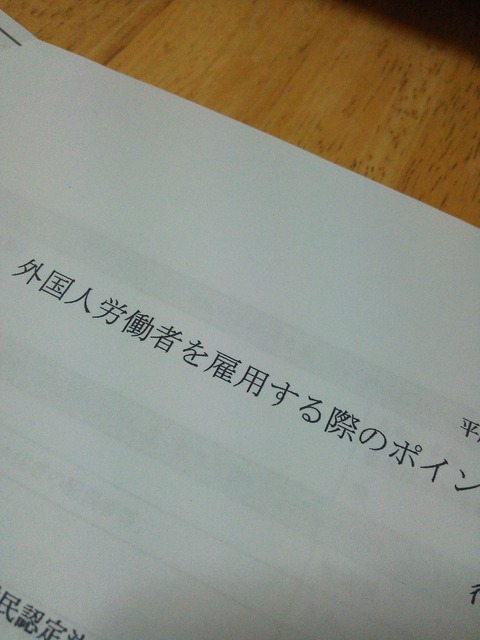 外国人労働者を雇用する際のポイン
平
民認定